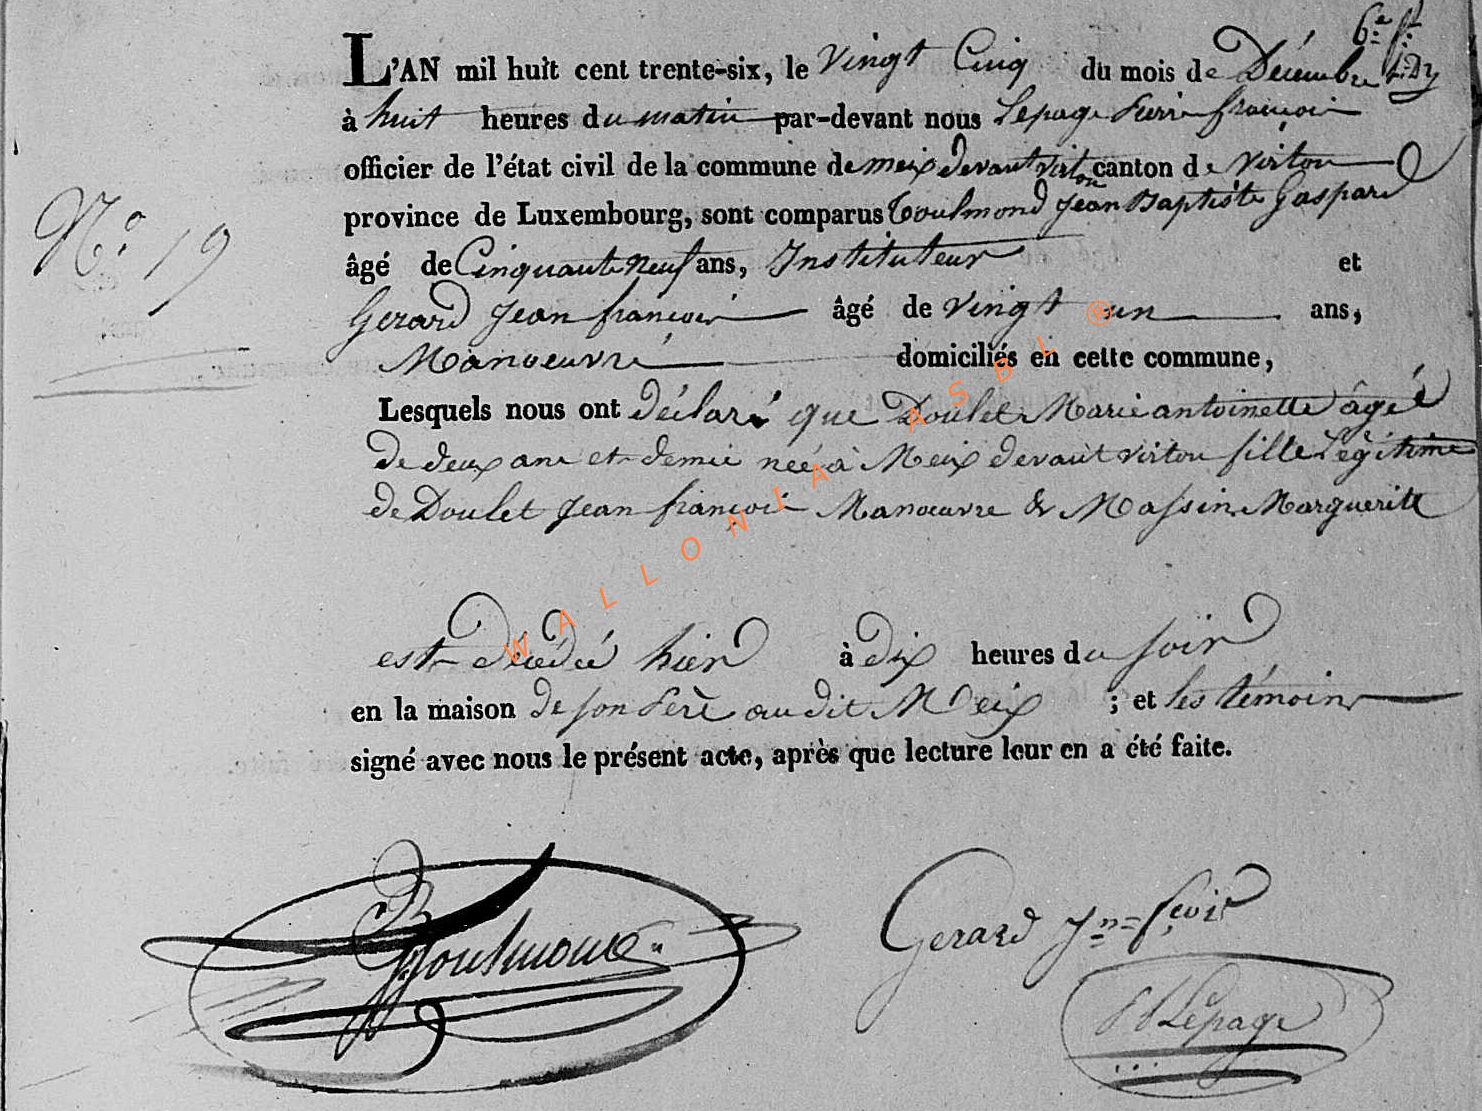 6e ft
L'AN mil huit cent trente-six, le Vingt Cinq du mois de Décembre
à huit heures du matin par-devant nous Lepage Pierre françois
officier de l'état civil de la commune de meix devant virton canton de virton
province de Luxembourg, sont comparus Toulmond Jean Baptiste Gaspard
âgé de Cinquante Neuf ans, Instituteur et
N.o 19
Gerard Jean françois âgé de vingt un ans,
Manoeuvre domiciliés en cette commune,
Lesquels nous ont déclaré que Doulet Marie antoinette âgée
de deux ans et demie née à Meix devant virton fille Légitime
de Doulet Jean françois Manœuvre & Massin Marguerite
est décédée hier à dix heures du soir
en la maison de son Père au dit Meix ; et les témoins
signé avec nous le présent acte, après que lecture leur en a été faite.
WALLONIA ASBL ®
Toulmond
Gerard Jn=fçois
Lepage